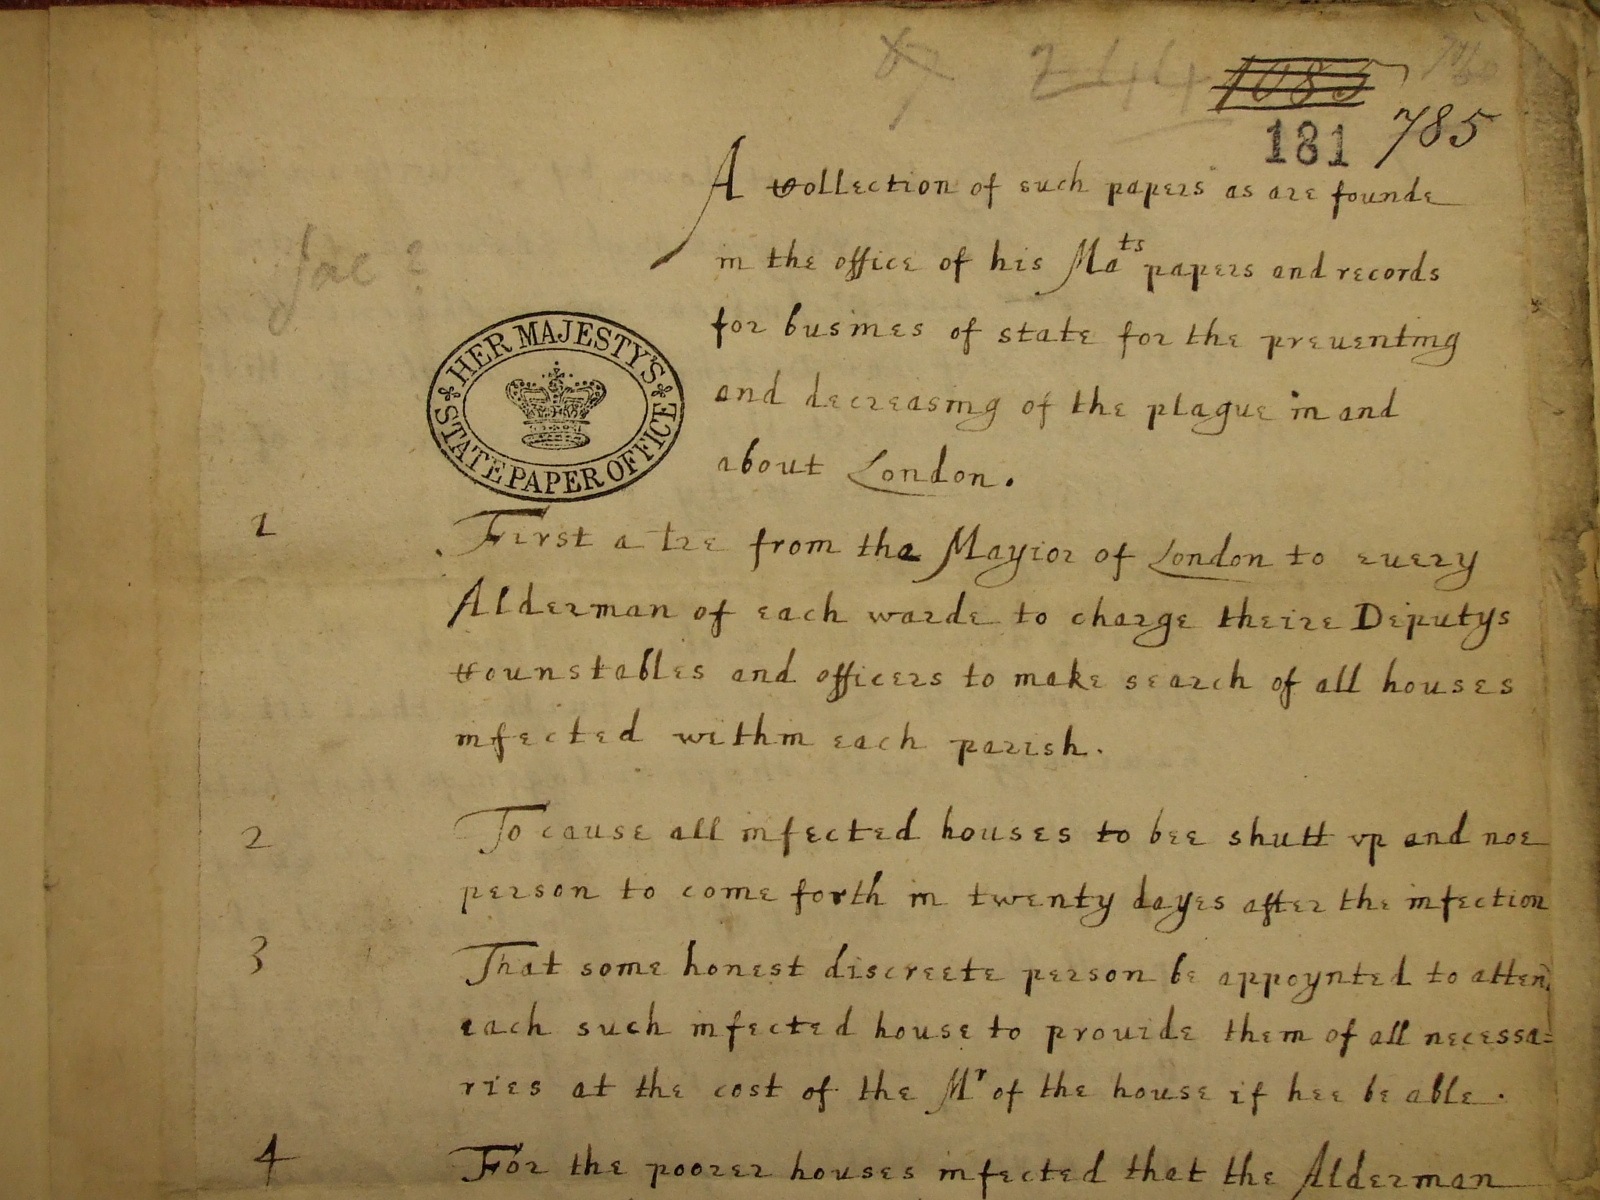 244 1085
181 785
A collection of such papers as are founde
in the office of his Mats papers and records
Jac?
for busines of state for the preuenting
HER MAJESTY'S STATE PAPER OFFICE
and decreasing of the plague in and
about London.
1 First a tre from the Mayior of London to euery
Alderman of each warde to charge theire Deputys
counstables and officers to make search of all houses
infected within each parish.
2 To cause all infected houses to bee shutt vp and noe
person to come forth in twenty dayes after the infection
3 That some honest discreete person be appoynted to atten
each such infected house to prouide them of all necessa=
ries at the cost of the Mr of the house if hee be able.
4 For the poorer houses infected that the Alderman